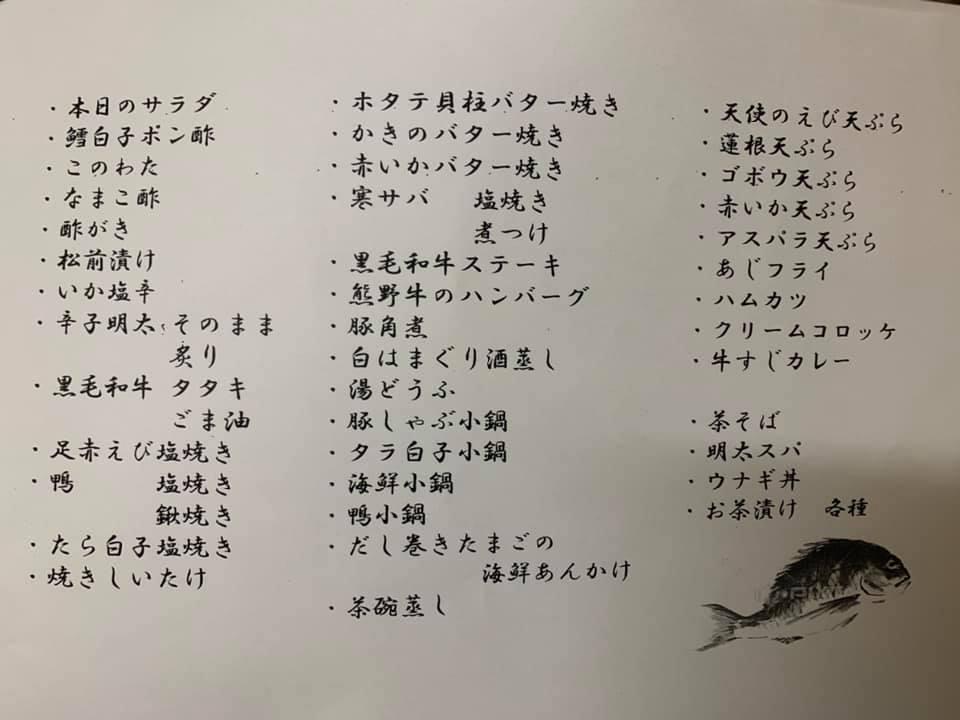 ・本日のサラダ
・鱈白子ポン酢
・このわた
・なまこ酢
・酢がき
・松前漬け
・いか塩辛
・辛子明太 そのまま
炙り
・黒毛和牛 タタキ
ごま油
・足赤えび塩焼き
・鴨 塩焼き
鍬焼き
・たら白子塩焼き
・焼きしいたけ
・ホタテ貝柱バター焼き
・かきのバター焼き
・赤いかバター焼き
・寒サバ 塩焼き
煮つけ
・黒毛和牛ステーキ
・熊野牛のハンバーグ
・豚角煮
・白はまぐり酒蒸し
・湯どうふ
・豚しゃぶ小鍋
・タラ白子小鍋
・海鮮小鍋
・鴨小鍋
・だし巻きたまごの
海鮮あんかけ
・茶碗蒸し
・天使のえび天ぷら
・蓮根天ぷら
・ゴボウ天ぷら
・赤いか天ぷら
・アスパラ天ぷら
・あじフライ
・ハムカツ
・クリームコロッケ
・牛すじカレー
・茶そば
・明太スパ
・ウナギ丼
・お茶漬け 各種